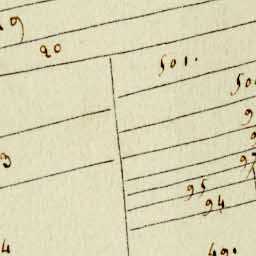 19
20
501.
50
9
9
97
3
95
94
4
49.